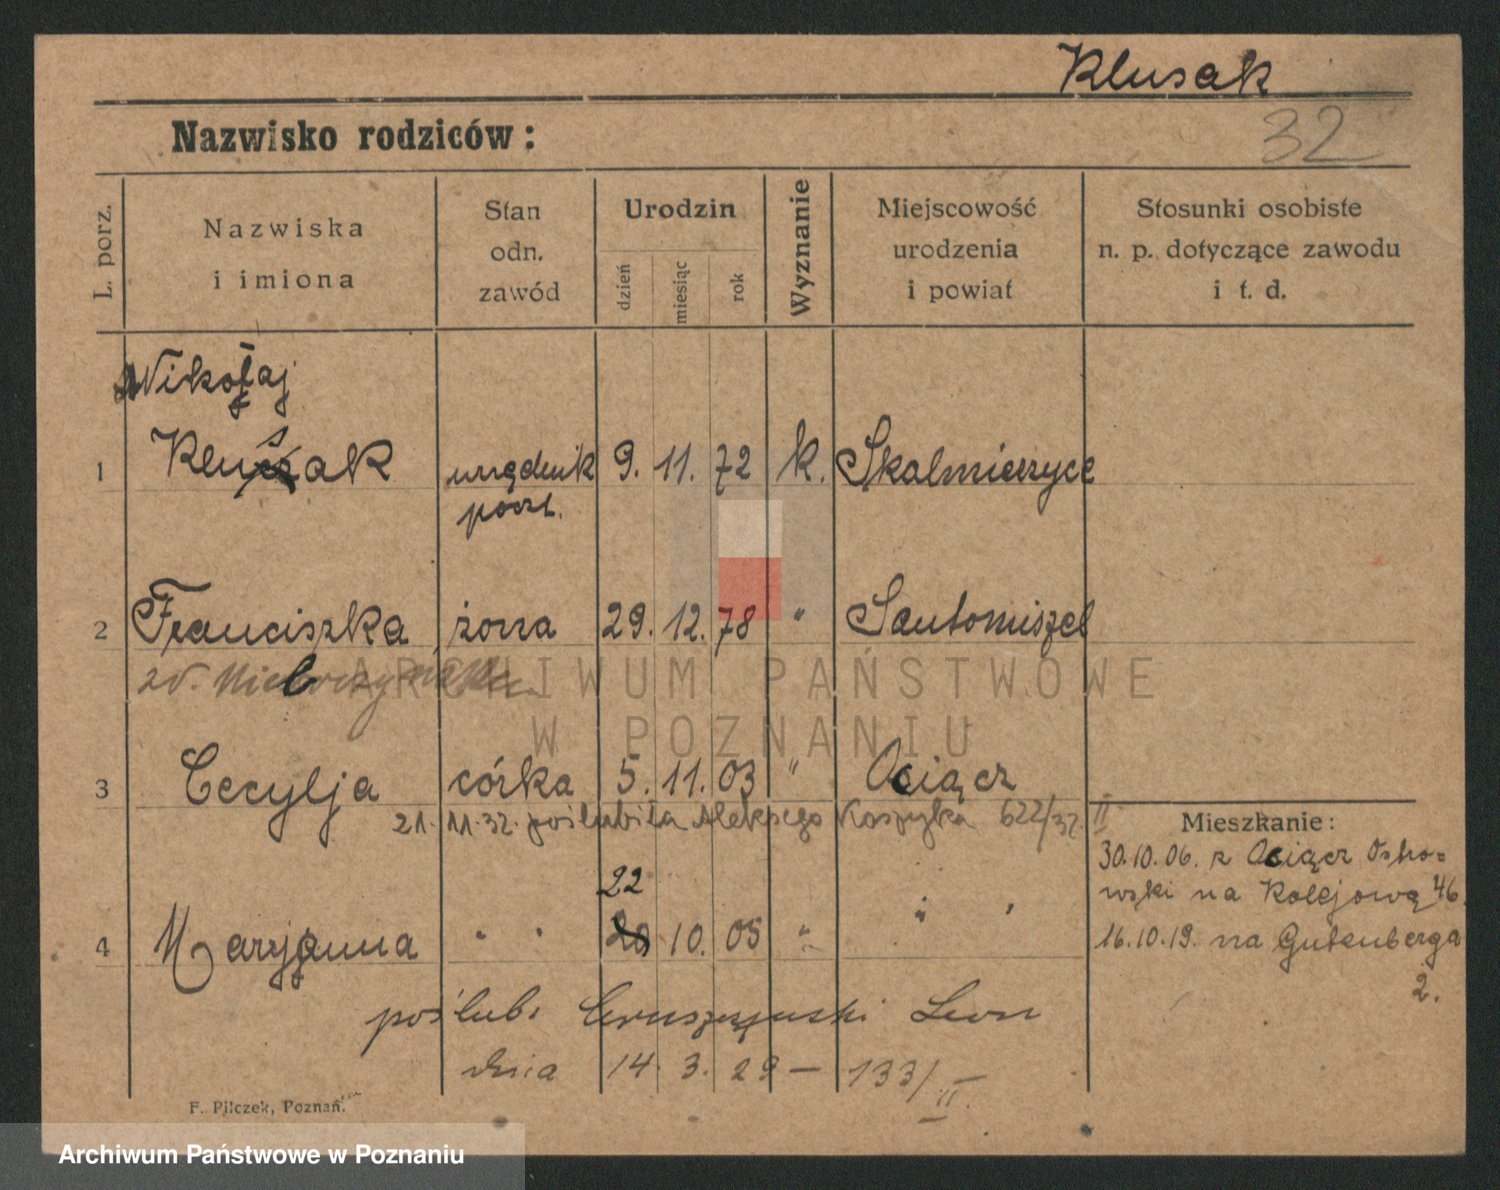 Klusak
32
Nazwisko rodziców:
L. porz.
Nazwiska
i imiona
Stan
odn.
zawód
Urodzin
dzień
miesiąc
rok
Wyznanie
Miejscowość
urodzenia
i powiat
Stosunki osobiste
n. p. dotyczące zawodu
i t. d.
Nikołaj
1 Klusak urzędnik 9. 11. 72 k. Skalmierzyce
poczt.
2 Franciszka żona 29. 12. 78 " Santomiszel
zd.
ARCHIWUM PAŃSTWOWE
W POZNANIU
3 Cecylja córka 5. 11. 03 " Ociącz
21. 11. 32. poślubiła Aleksego Koszyka 622/32. II
Mieszkanie:
30.10.06. z Ociącz Ostro=
wski na Kolejową 46.
22
4 Maryjanna " " 20 10. 05 " " "
16.10.19. na Gutenberga
2.
poślub. Leon
dnia 14. 3. 29 — 133/II.
F. Pilczek, Poznań.
Archiwum Państwowe w Poznaniu